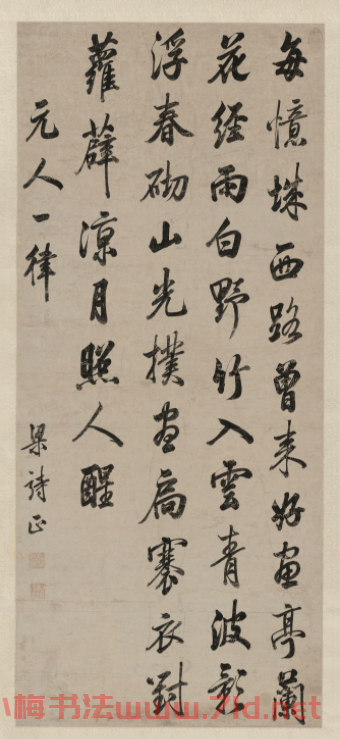 每憶城西路曾来好画亭蘭
花經雨白野竹入雲青波影
浮春砌山光撲画扃褰衣對
蘿薜凉月照人醒
元人一律
梁詩正
小梅书法www.71d.net